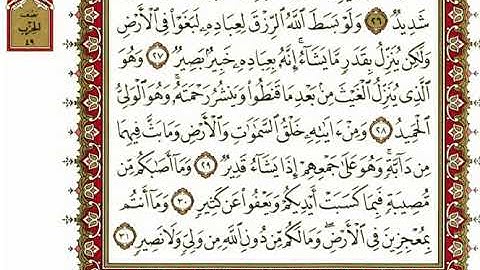 نصف
الحزب
٤٩
شَدِيدٌ ٢٦ وَلَوْ بَسَطَ ٱللَّهُ ٱلرِّزْقَ لِعِبَادِهِۦ لَبَغَوْا۟ فِى ٱلْأَرْضِ
وَلَٰكِن يُنَزِّلُ بِقَدَرٍ مَّا يَشَآءُ ۚ إِنَّهُۥ بِعِبَادِهِۦ خَبِيرٌۢ بَصِيرٌ ٢٧ وَهُوَ
ٱلَّذِى يُنَزِّلُ ٱلْغَيْثَ مِنۢ بَعْدِ مَا قَنَطُوا۟ وَيَنشُرُ رَحْمَتَهُۥ ۚ وَهُوَ ٱلْوَلِىُّ
ٱلْحَمِيدُ ٢٨ وَمِنْ ءَايَٰتِهِۦ خَلْقُ ٱلسَّمَٰوَٰتِ وَٱلْأَرْضِ وَمَا بَثَّ فِيهِمَا
مِن دَآبَّةٍ ۚ وَهُوَ عَلَىٰ جَمْعِهِمْ إِذَا يَشَآءُ قَدِيرٌ ٢٩ وَمَآ أَصَٰبَكُم مِّن
مُّصِيبَةٍ فَبِمَا كَسَبَتْ أَيْدِيكُمْ وَيَعْفُوا۟ عَن كَثِيرٍ ٣٠ وَمَآ أَنتُم
بِمُعْجِزِينَ فِى ٱلْأَرْضِ ۖ وَمَا لَكُم مِّن دُونِ ٱللَّهِ مِن وَلِىٍّ وَلَا نَصِيرٍ ٣١